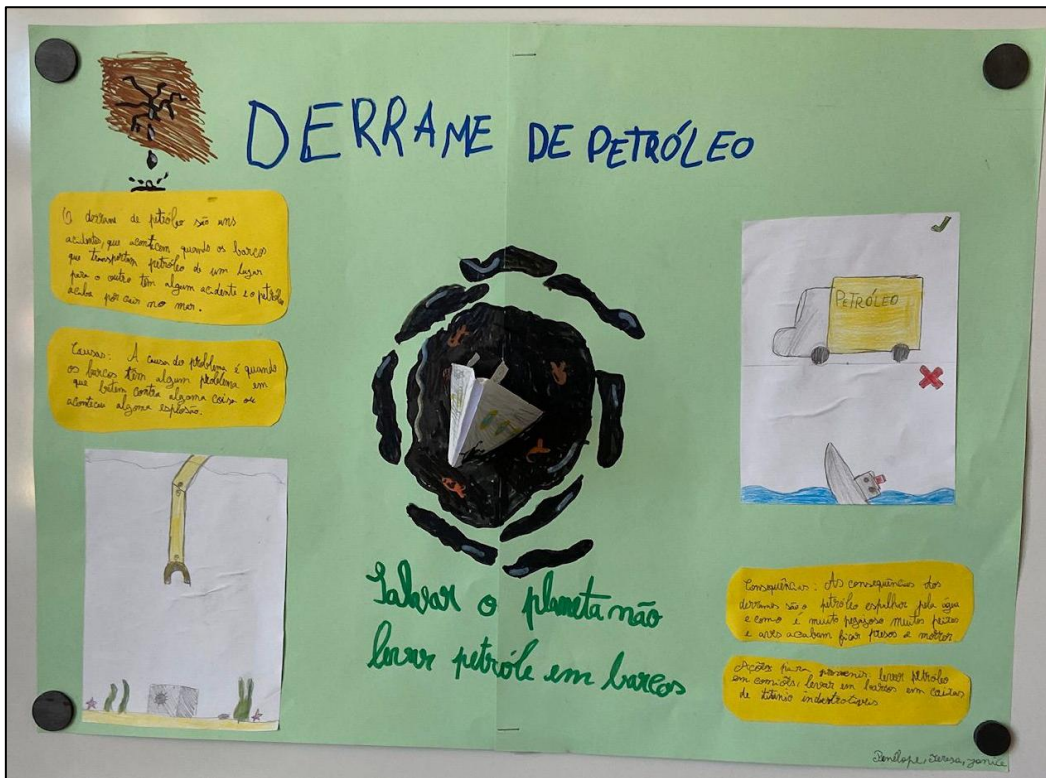 DERRAME DE PETRÓLEO
O derrame de petróleo são uns
acidentes, que acontecem quando os barcos
que transportam petróleo de um lugar
para o outro têm algum acidente e o petróleo
acaba por cair no mar.
Causas: A causa do problema é quando
os barcos têm algum problema em
que batem contra alguma coisa ou
aconteceu alguma explosão.
PETRÓLEO
Salvar o planeta não
levar petróle em barcos
Consequências: As consequências dos
derrames são o petróleo espalhar pela água
e como é muito pegajoso muitos peixes
e aves acabam ficar presos e
Ações para levar petróleo
em levar em barcos em caixas
de titanio
Penélope, Teresa,